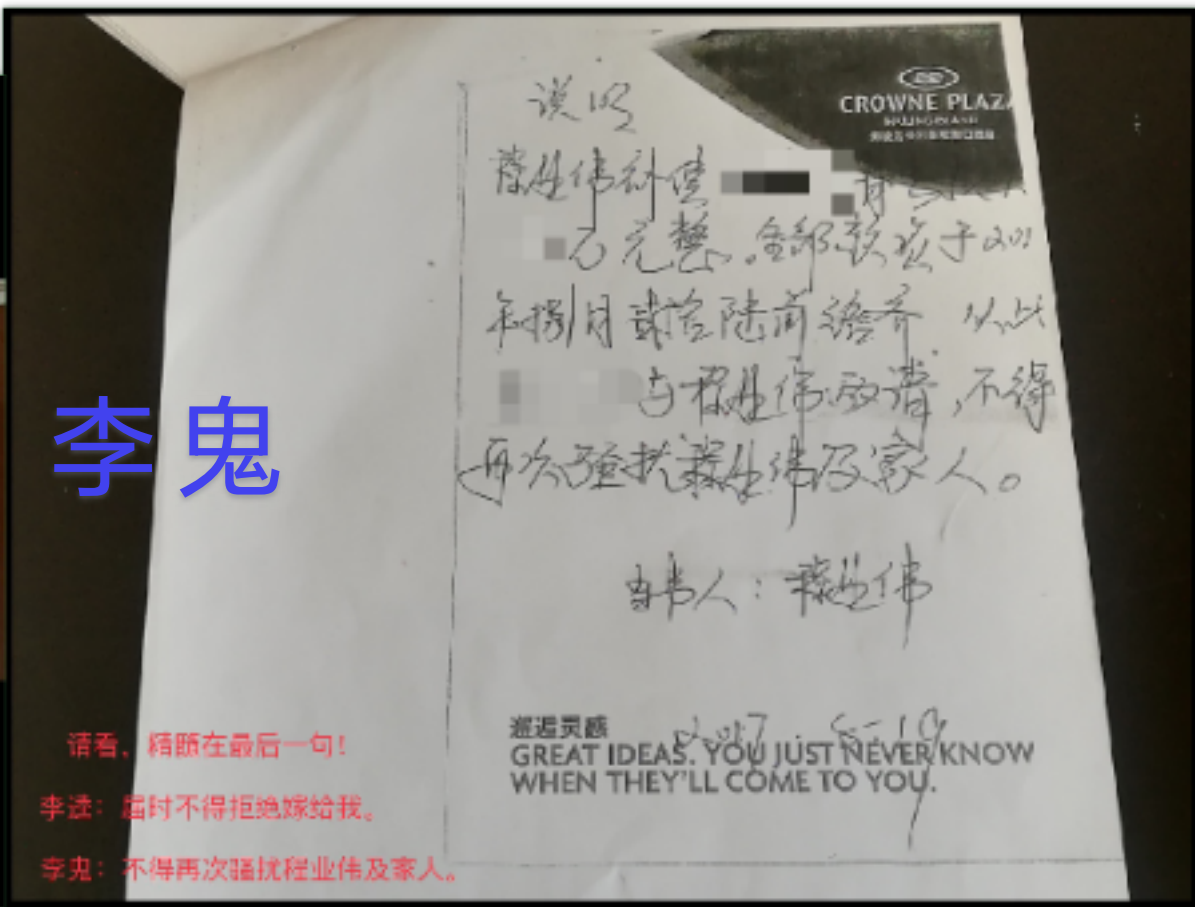 说明
CROWNE PLAZA
程业伟补偿
万元整。全部款项于201
年捌月贰拾陆前结齐 从此
与程业伟两清,不得
再次骚扰程业伟及家人。
李鬼
当事人:程业伟
2017 8-19
邂逅灵感
GREAT IDEAS. YOU JUST NEVER KNOW
WHEN THEY'LL COME TO YOU.
请看,精髓在最后一句!
李逵:届时不得拒绝嫁给我。
李鬼:不得再次骚扰程业伟及家人。